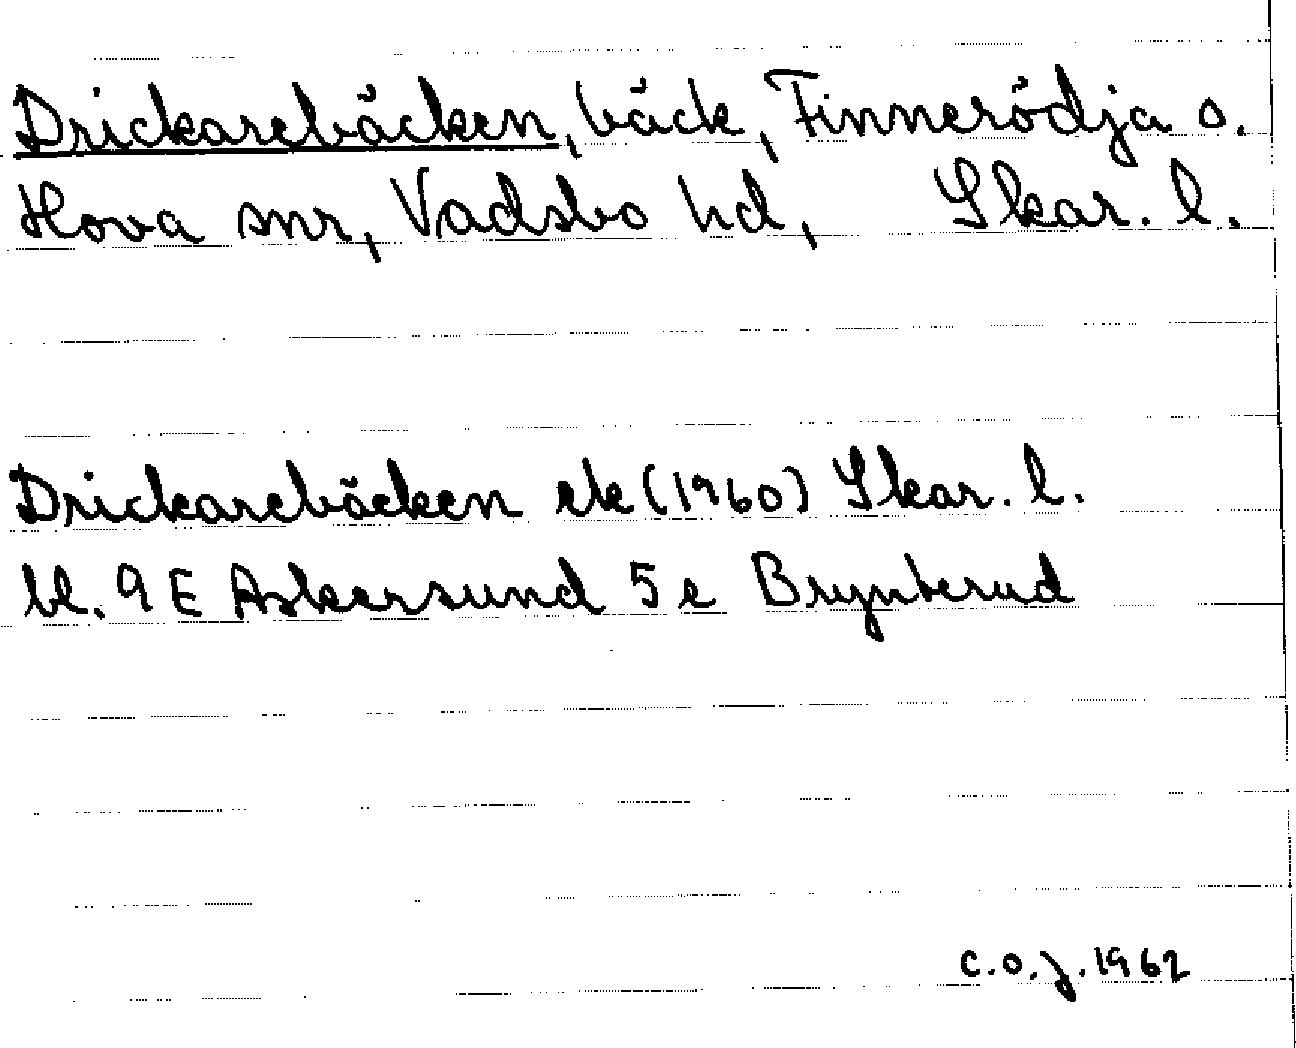 Drickarebäcken, bäck, Finnerödja o.
Hova snr, Vadsbo hd, Skar. l.
Drickarebäcken ek (1960) Skar. l.
bl. 9 E Askersund 5 e Brynterud
C.O.J. 1962